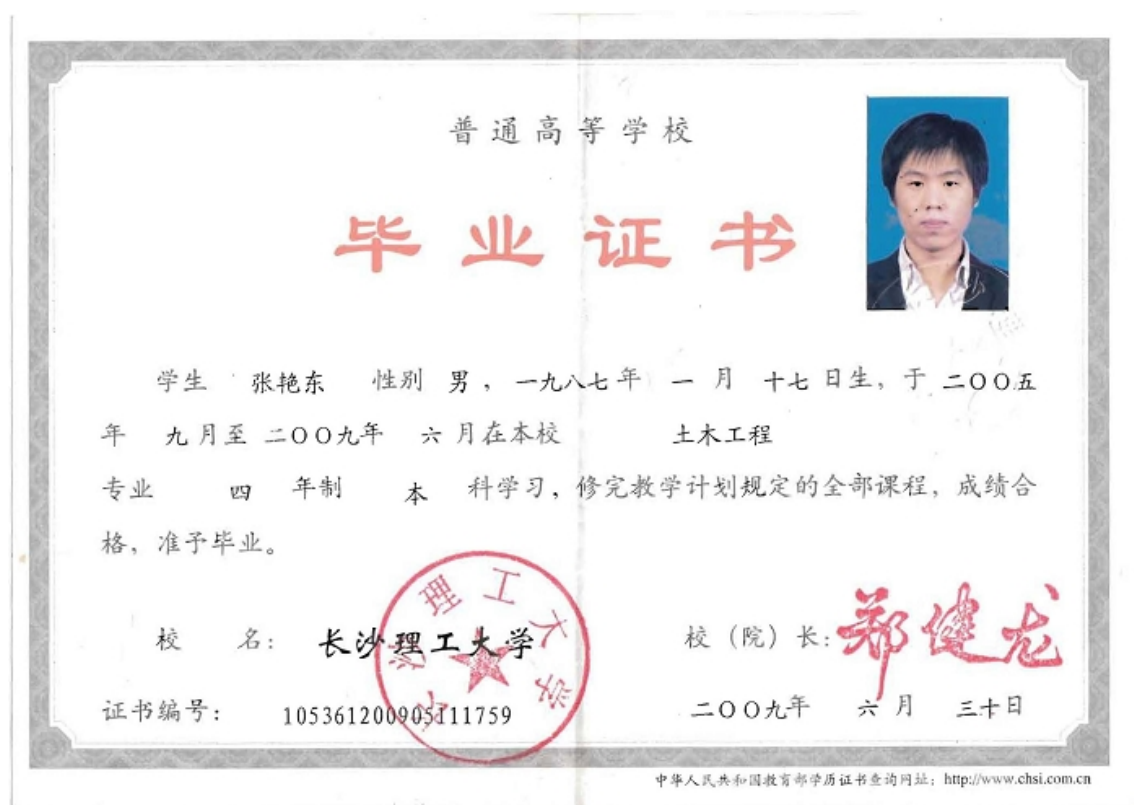 普通高等学校
毕业证书
学生 张艳东 性别 男，一九八七年 一 月 十七日生，于 二〇〇五
年 九月至 二〇〇九年 六月在本校 土木工程
专业 四 年制 本 科学习，修完教学计划规定的全部课程，成绩合
格，准予毕业。
校 名： 长沙理工大学
校（院）长：郑健龙
长沙理工大学
证书编号： 105361200905111759
二〇〇九年 六月 三十日
中华人民共和国教育部学历证书查询网址：http://www.chsi.com.cn